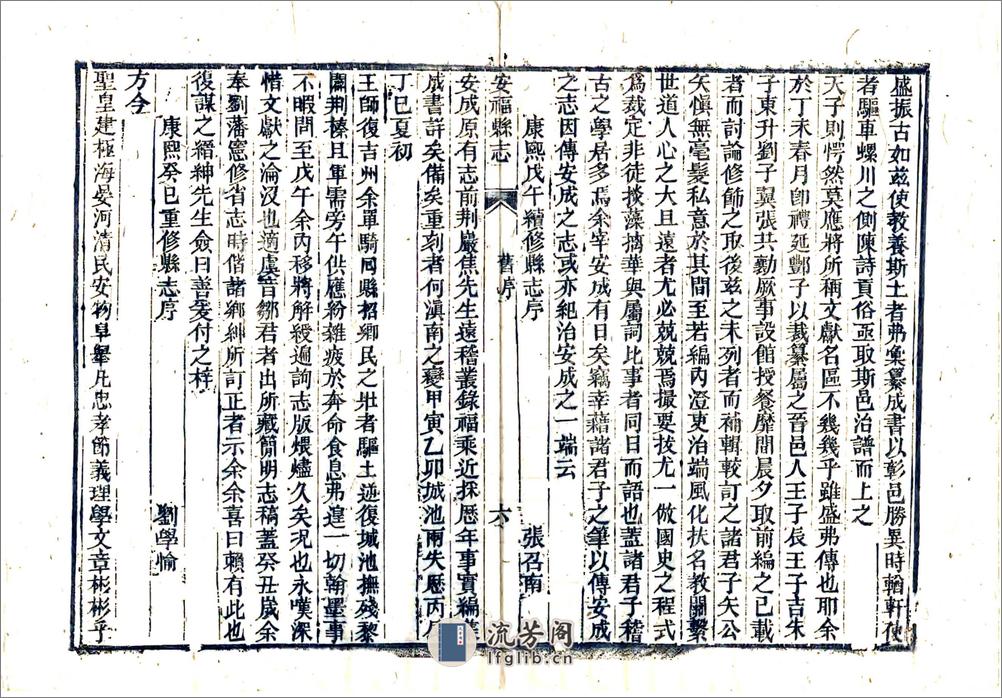 盛振古如茲使教養斯土者弗彙纂成書以彰邑勝異時輶軒使
者驅車螺川之側陳詩貢俗亟取斯邑治譜而上之
天子則愕然莫應將所稱文獻名區不幾幾乎雖盛弗傳也耶余
於丁未春月卽禮延酆子以裁纂屬之晉邑人王子辰王子吉朱
子東升劉子翼張共勷厥事設館授餐靡間晨夕取前編之已載
者而討論修飾之取後茲之未列者而補輯較訂之諸君子矢公
矢愼無毫髮私意於其間至若編內澄吏治端風化扶名教關繫
世道人心之大且遠者尤必兢兢焉撮要拔尤一倣國史之程式
爲裁定非徒掞藻摛華與屬詞比事者同日而語也蓋諸君子稽
古之學居多焉余宰安成有日矣竊幸藉諸君子之筆以傳安成
之志因傳安成之志或亦絕治安成之一端云
康熙戊午續修縣志序 張召南
安福縣志 舊序 六
安成原有志前荆巖焦先生遠稽叢錄福乘近採歷年事實編
成書詳矣備矣重刻者何滇南之變甲寅乙卯城池兩失歷丙
丁巳夏初
王師復吉州余單騎同縣招鄉民之壯者驅土逆復城池撫殘黎
闢荆榛且軍需旁午供應紛雜疲於奔命食息弗遑一切翰墨事
不暇問至戊午余內移將解綬遍詢志版煨燼久矣況也永嘆深
惜文獻之淪沒也適虞音鄒君者出所藏簡明志稿蓋癸丑歲余
奉劉藩憲修省志時偕諸鄉紳所訂正者示余余喜曰賴有此也
復謀之縉紳先生僉曰善爰付之梓
康熙癸巳重修縣志序 劉學愉
方今
聖皇建極海晏河清民安物阜舉凡忠孝節義理學文章彬彬乎
流芳阁
lfglib.cn